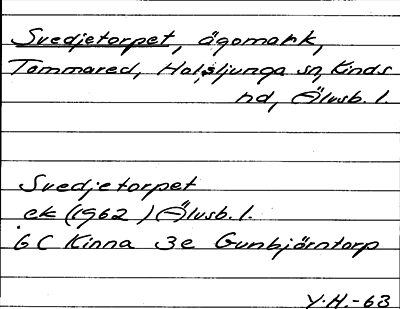 Svedjetorpet, ägomark,
Tommared, Holsljunga sn, Kinds
hd, Älvsb. l.
Svedjetorpet
ek (1962) Älvsb. l.
6C Kinna 3e Gunbjörntorp
Y.H.-63